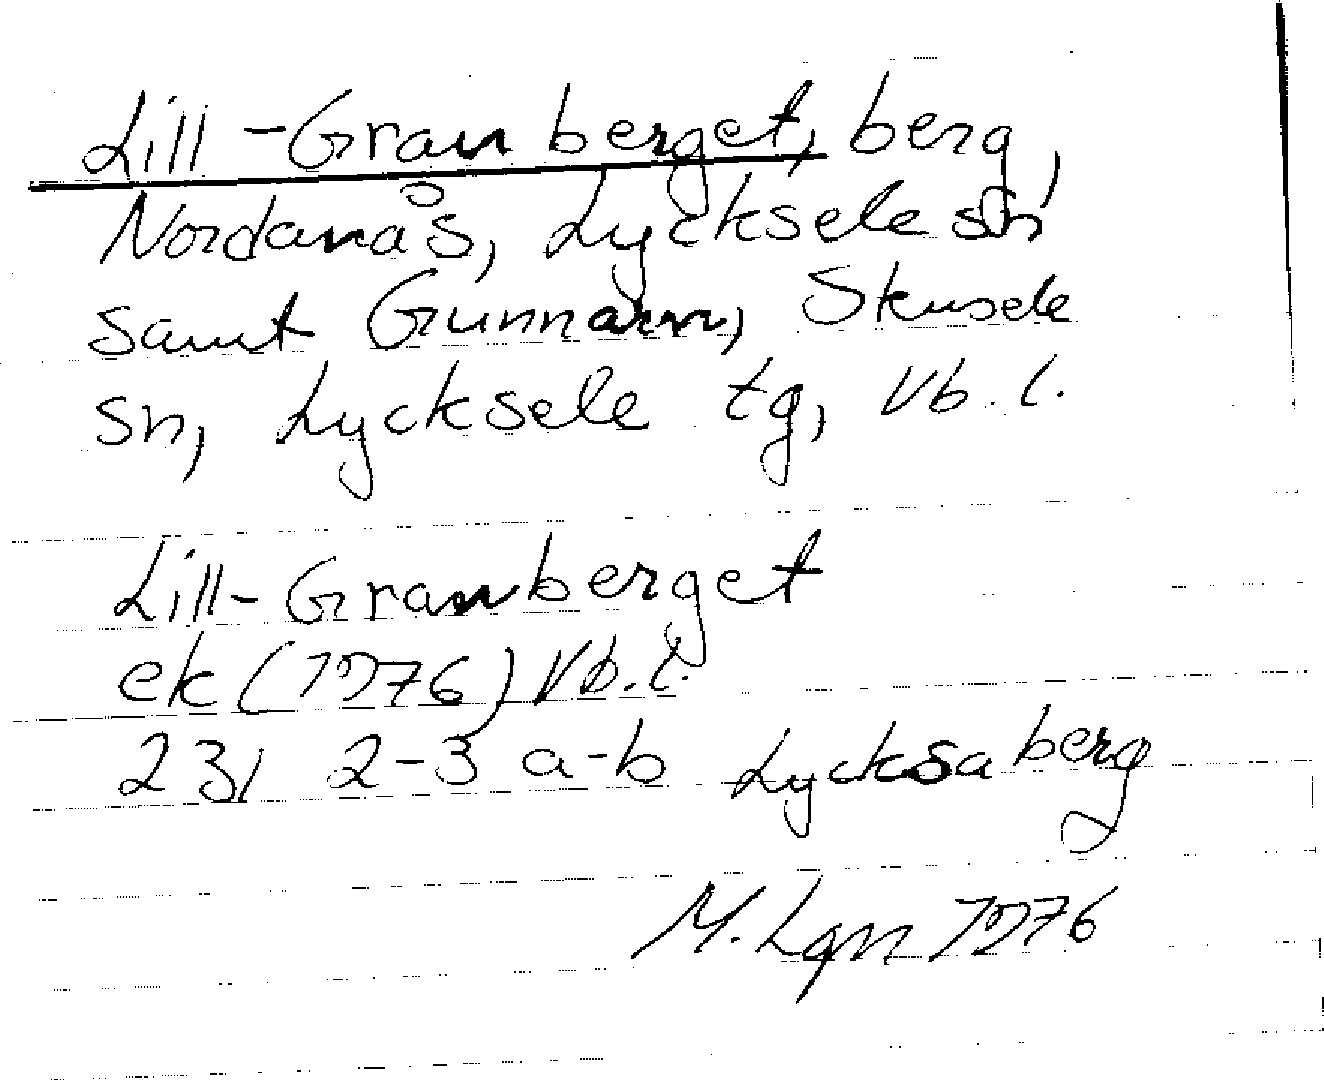 Lill-Granberget, berg,
Nordanås, Lycksele sn
samt Gunnarn, Stensele
sn, Lycksele tg, Vb. l.
Lill-Granberget
ek (1976) Vb. l.
23I 2-3 a-b Lycksaberg
M. Lgn 1976